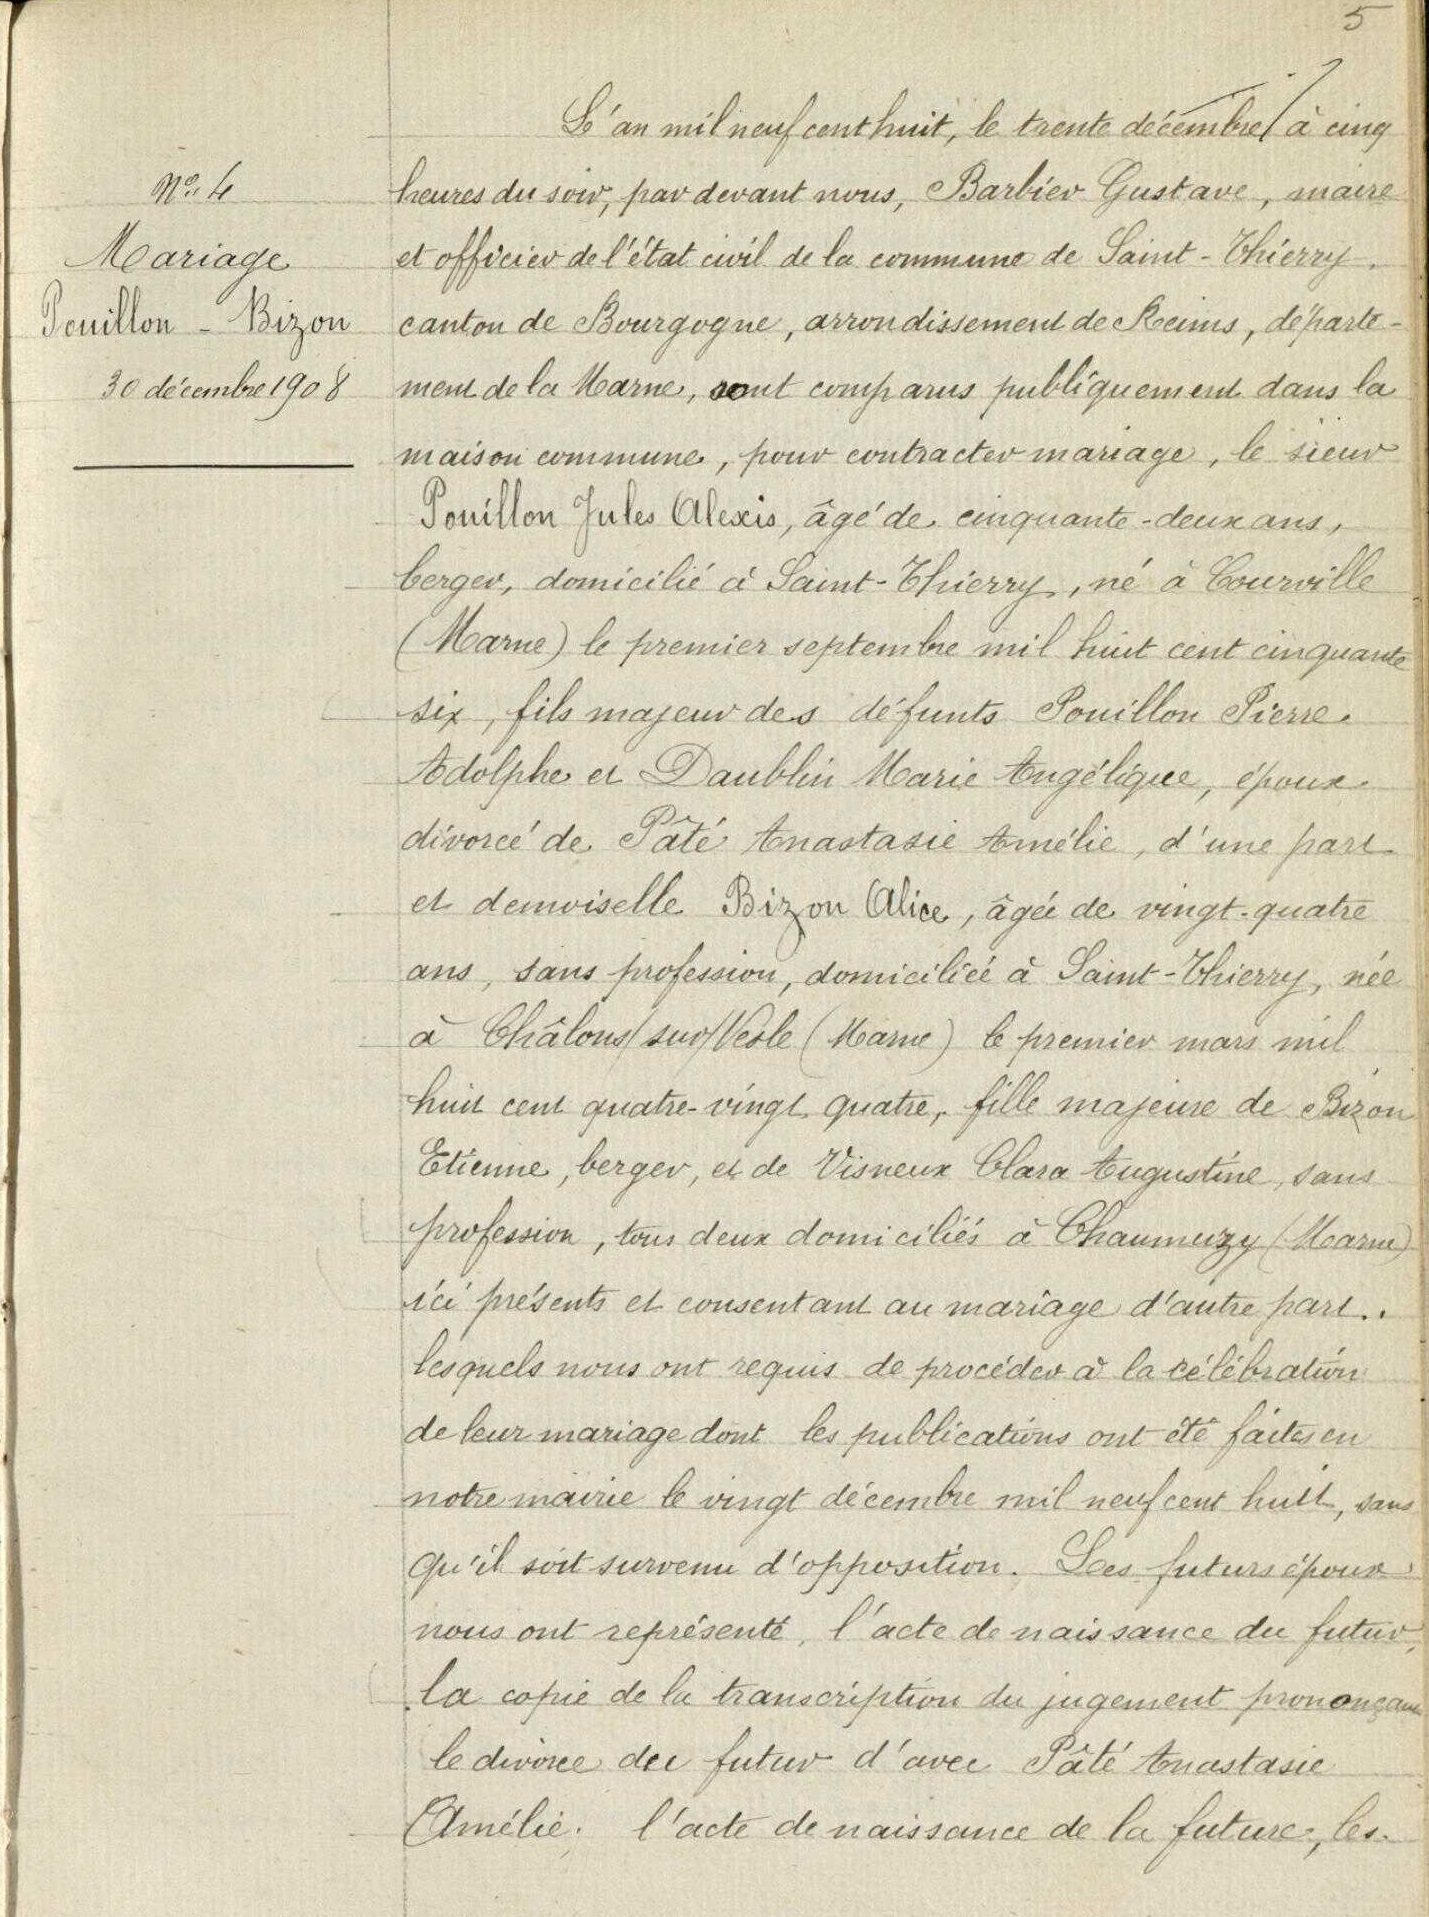 5
L'an mil neuf cent huit, le trente décembre à cinq
No. 4
heures du soir, par devant nous, Barbier Gustave, maire
Mariage
et officier de l'état civil de la commune de Saint-Thierry.
Pouillon - Bizon
canton de Bourgogne, arrondissement de Reims, départe-
30 décembre 1908
ment de la Marne, sont comparus publiquement dans la
maison commune, pour contracter mariage, le sieur
Pouillon Jules Alexis, âgé de cinquante-deux ans,
berger, domicilié à Saint-Thierry, né à Courville
(Marne) le premier septembre mil huit cent cinquante
six, fils majeur des défunts Pouillon Pierre
Adolphe et Daublin Marie Angélique, époux
divorcé de Pâté Anastasie Amélie, d'une part
et demoiselle Bizon Alice, âgée de vingt-quatre
ans, sans profession, domiciliée à Saint-Thierry, née
à Châlons/sur/Vesle (Marne) le premier mars mil
huit cent quatre-vingt quatre, fille majeure de Bizon
Etienne, berger, et de Visneux Clara Augustine, sans
profession, tous deux domiciliés à Chaumuzy (Marne)
ici présents et consentant au mariage d'autre part..
lesquels nous ont requis de procéder à la célébration
de leur mariage dont les publications ont été faites en
notre mairie le vingt décembre mil neuf cent huit, sans
qu'il soit survenu d'opposition. Les futurs époux
nous ont représenté, l'acte de naissance du futur,
la copie de la transcription du jugement prononçant
le divorce du futur d'avec Pâté Anastasie
Amélie. l'acte de naissance de la future, les